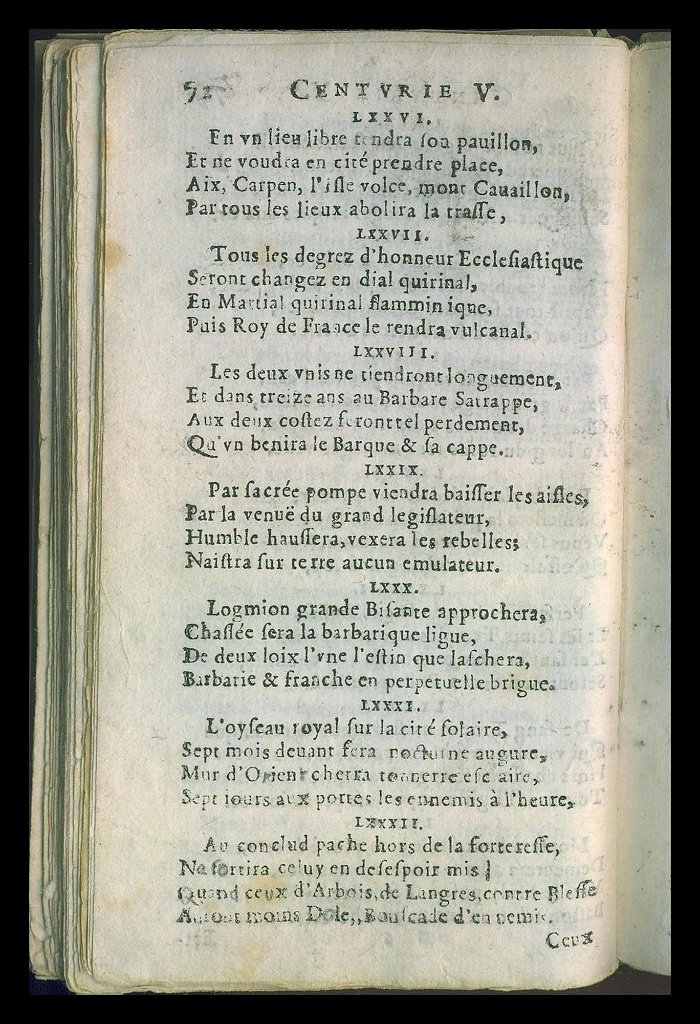 52 CENTVRIE V.
LXXVI.
En vn lieu libre tendra son pauillon,
Et ne voudra en cité prendre place,
Aix, Carpen, l'isle volce, mont Cauaillon,
Par tous les lieux abolira la trasse,
LXXVII.
Tous les degrez d'honneur Ecclesiastique
Seront changez en dial quirinal,
En Martial quirinal flammin ique,
Puis Roy de France le rendra vulcanal.
LXXVIII.
Les deux vnis ne tiendront longuement,
Et dans treize ans au Barbare Satrappe,
Aux deux costez feront tel perdement,
Qu'vn benira le Barque & sa cappe.
LXXIX.
Par sacrée pompe viendra baisser les aisles,
Par la venuë du grand legislateur,
Humble haussera, vexera les rebelles;
Naistra sur terre aucun emulateur.
LXXX.
Logmion grande Bisante approchera,
Chassée sera la barbarique ligue,
De deux loix l'vne l'estin que laschera,
Barbarie & franche en perpetuelle brigue.
LXXXI.
L'oyseau royal sur la cité solaire,
Sept mois deuant fera nocturne augure,
Mur d'Orient cherra tonnerre esc aire,
Sept iours aux portes les ennemis à l'heure,
LXXXII.
Au conclud pache hors de la forteresse,
Ne sortira celuy en desespoir mis
Quand ceux d'Arbois, de Langres, contre Bresse
Auront moins Dole,, Bouscade d'ennemis.
Ceux